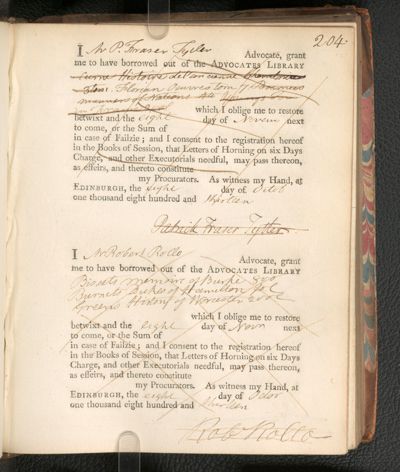 204.
I Mr P. Fraser Tytler Advocate, grant
me to have borrowed out of the ADVOCATES LIBRARY
Histoire de l'ancienne
Florian Oeuvres tom 7
manners of Nations
which I oblige me to restore
betwixt and the eight day of Novem next
to come, or the Sum of
in case of Failzie; and I consent to the registration hereof
in the Books of Session, that Letters of Horning on six Days
Charge, and other Executorials needful, may pass thereon,
as effeirs, and thereto constitute
my Procurators. As witness my Hand, at
EDINBURGH, the eight day of Octob
one thousand eight hundred and thirteen
Patrick Fraser Tytler
I Mr Robert Rollo Advocate, grant
me to have borrowed out of the ADVOCATES LIBRARY
Bissets memoirs of Burke 8vo
Burnets Dukes of Hamilton fol
Greens History of Worcester 2 vol
which I oblige me to restore
betwixt and the eight day of Novr next
to come, or the Sum of
in case of Failzie; and I consent to the registration hereof
in the Books of Session, that Letters of Horning on six Days
Charge, and other Executorials needful, may pass thereon,
as effeirs, and thereto constitute
my Procurators. As witness my Hand, at
EDINBURGH, the eight day of Octor
one thousand eight hundred and thirteen
Rob Rollo